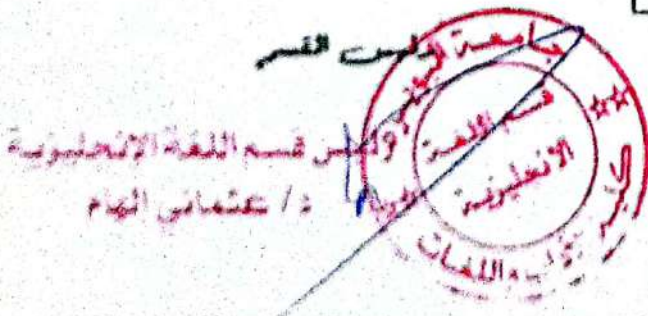 رئيس القسم
رئيس قسم اللغة الإنجليزية
د/ عثماني الهام
جامعة
قسم اللغة
الإنجليزية
كلية الآداب واللغات